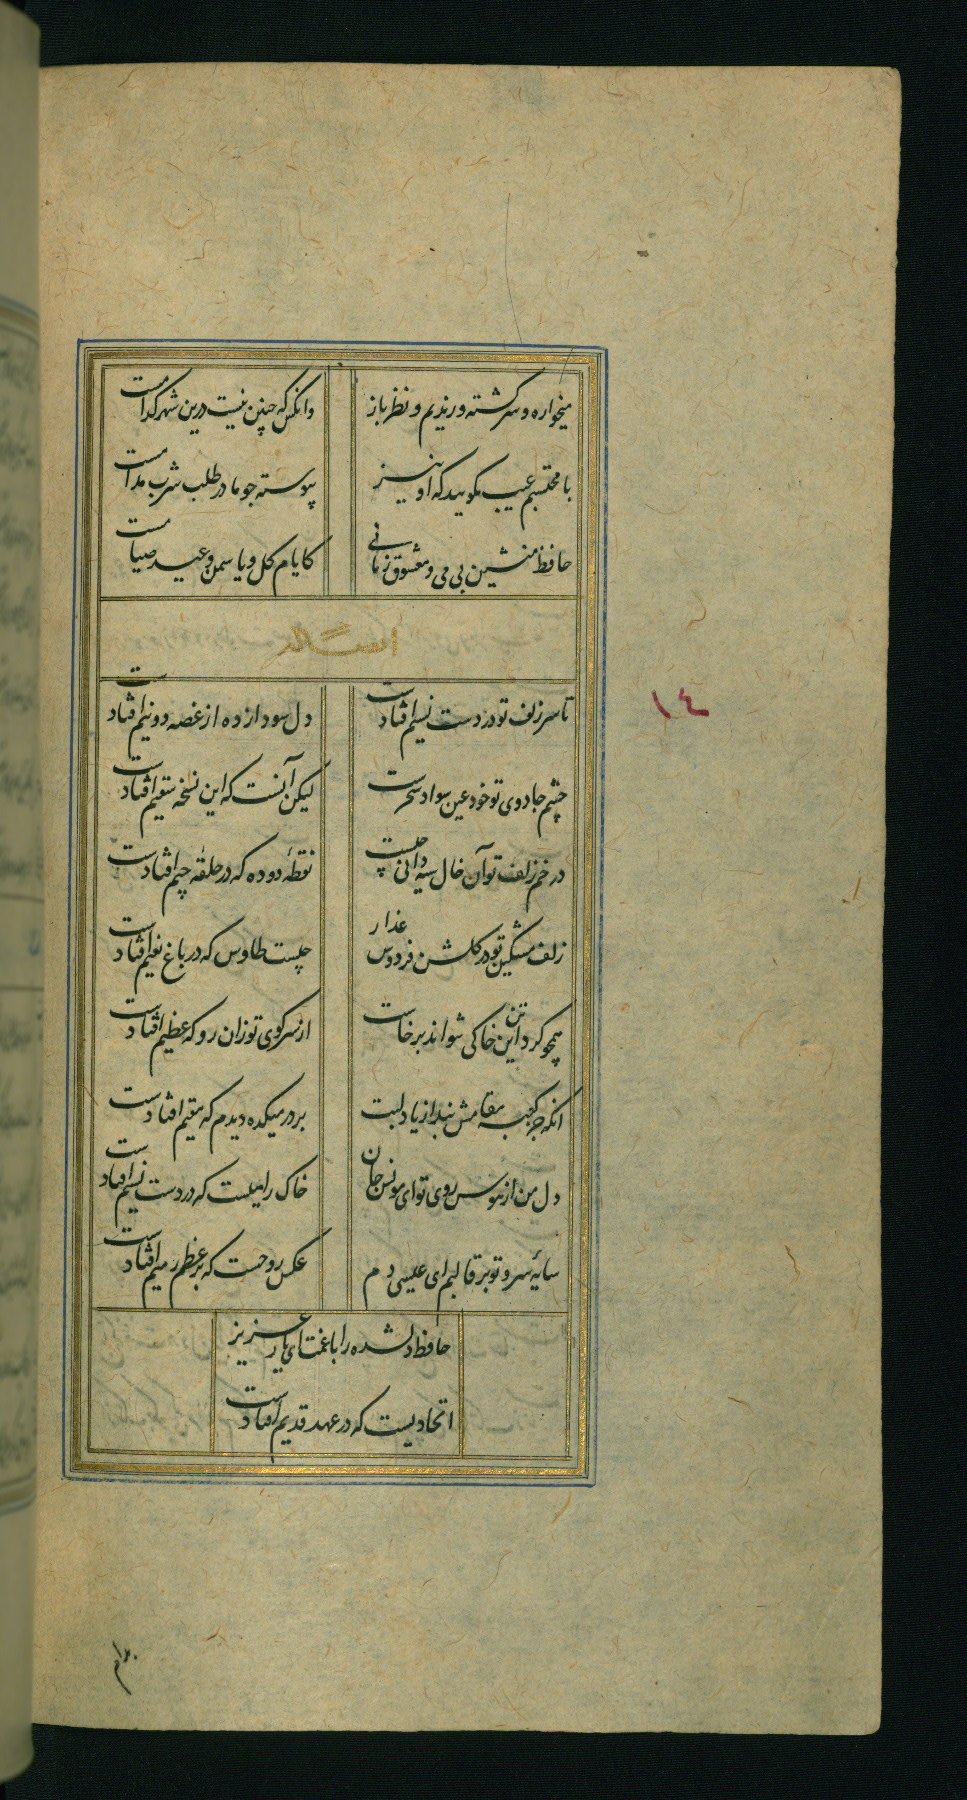 میخواره و سرکشته و رندیم و نظر باز
وانکس که چنین نیست درین شهر کدامست
با محتسبم عیب مکویید که او نیز
پیوسته چو ما در طلب شرب مدامست
حافظ منشین بی می و معشوق زمانی
کایام کل و یاسمن و عید صیامست
تا سر زلف تو در دست نسیم افتادست
دل سودازده از غصه دو نیم افتادست
چشم جادوی تو خود عین سواد سحرست
لیکن آنست که این نسخه سقیم افتادست
در خم زلف تو آن خال سیه دانی چیست
نقطهٔ دوده که در حلقهٔ جیم افتادست
زلف مشکین تو در کلشن فردوس عذار
چیست طاوس که در باغ نعیم افتادست
همچو کرد این تن خاکی نتواند برخاست
از سر کوی تو زان رو که عظیم افتادست
انکه جز کعبه مقامش نبد از یاد لبت
بر در میکده دیدم که مقیم افتادست
دل من از هوس روی تو ای مونس جان
خاک راهیست که در دست نسیم افتادست
سایهٔ سرو تو بر قالبم ای عیسی دم
عکس روحست که بر عظم رمیم افتادست
حافظ دلشده را با غمت ای یار عزیز
اتحادیست که در عهد قدیم افتادست
١٤